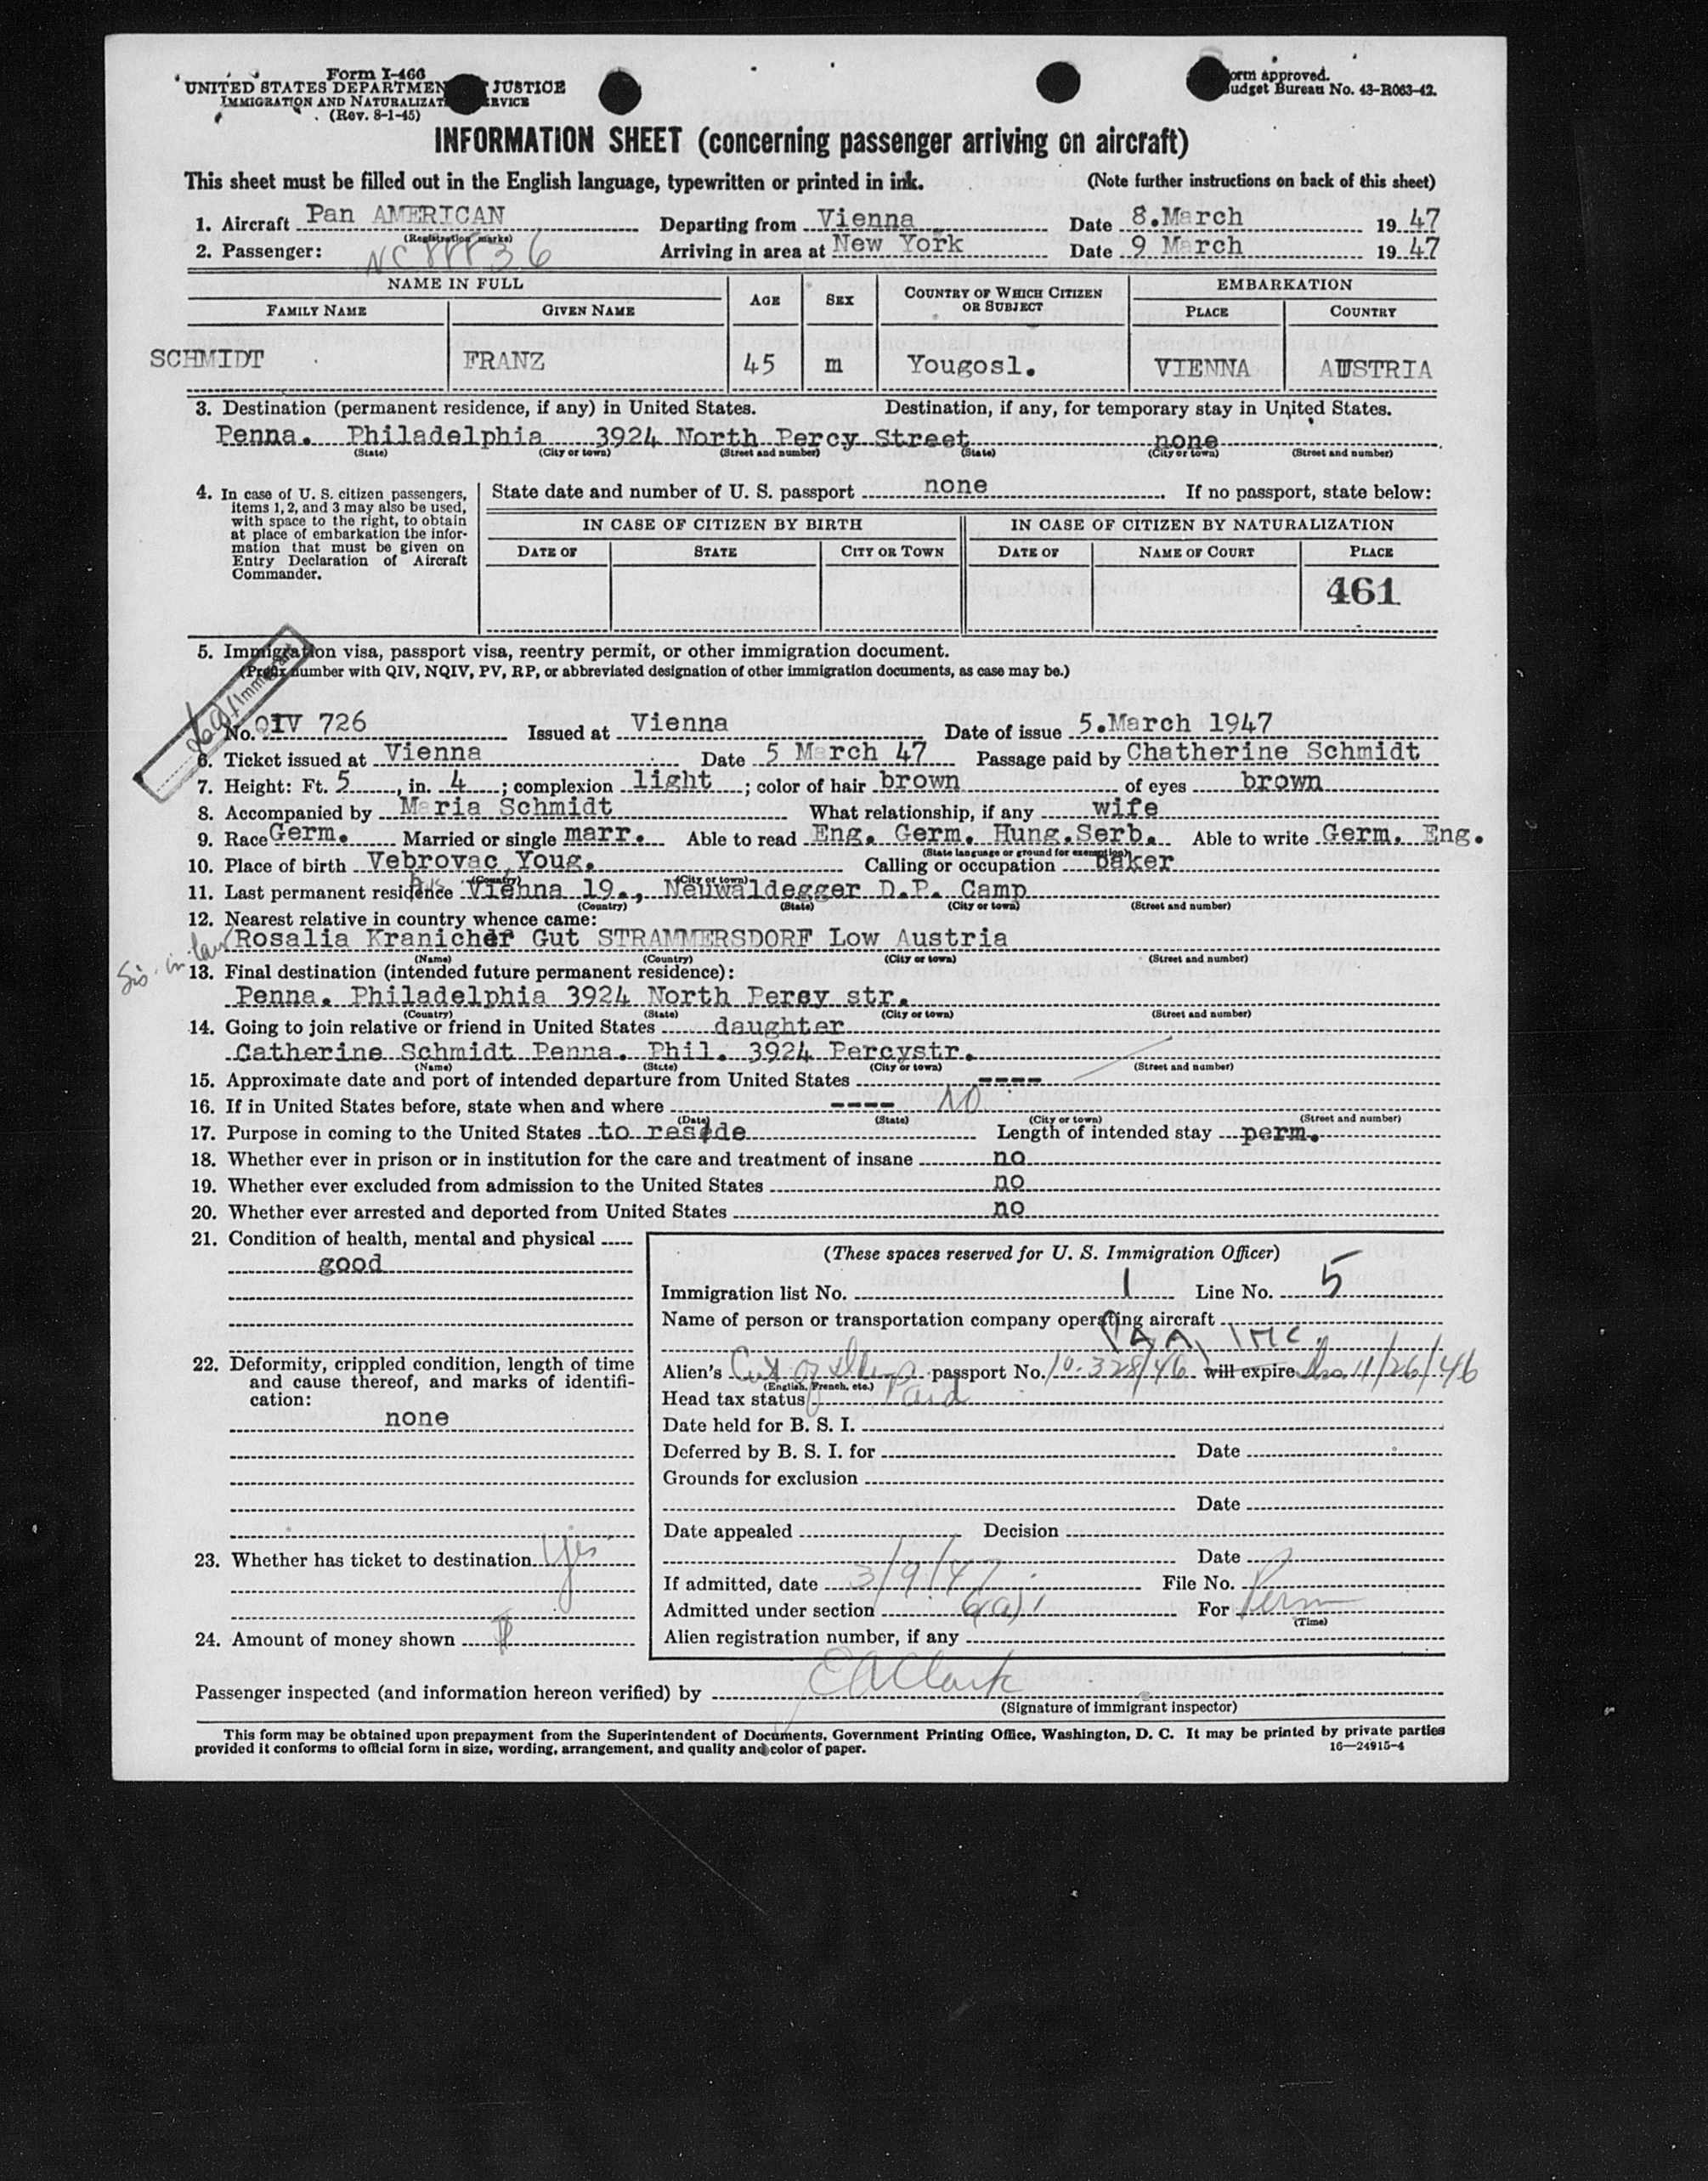 Form I-466
UNITED STATES DEPARTMEN JUSTICE
IMMIGRATION AND NATURALIZAT RVICE
(Rev. 8-1-45)
orm approved.
udget Bureau No. 43-R063-42.
INFORMATION SHEET (concerning passenger arriving on aircraft)
This sheet must be filled out in the English language, typewritten or printed in ink. (Note further instructions on back of this sheet)
1. Aircraft Pan AMERICAN Departing from Vienna Date 8.March 1947
(Registration marks)
2. Passenger: Arriving in area at New York Date 9 March 1947
NAME IN FULL AGE SEX COUNTRY OF WHICH CITIZEN OR SUBJECT EMBARKATION
FAMILY NAME GIVEN NAME PLACE COUNTRY
SCHMIDT FRANZ 45 m Yougosl. VIENNA AUSTRIA
3. Destination (permanent residence, if any) in United States. Destination, if any, for temporary stay in United States.
Penna. Philadelphia 3924 North Percy Street none
(State) (City or town) (Street and number) (State) (City or town) (Street and number)
4. In case of U. S. citizen passengers, items 1, 2, and 3 may also be used, with space to the right, to obtain at place of embarkation the information that must be given on Entry Declaration of Aircraft Commander.
State date and number of U. S. passport none If no passport, state below:
IN CASE OF CITIZEN BY BIRTH IN CASE OF CITIZEN BY NATURALIZATION
DATE OF STATE CITY OR TOWN DATE OF NAME OF COURT PLACE
461
5. Immigration visa, passport visa, reentry permit, or other immigration document.
(Prefix number with QIV, NQIV, PV, RP, or abbreviated designation of other immigration documents, as case may be.)
No. QIV 726 Issued at Vienna Date of issue 5.March 1947
6. Ticket issued at Vienna Date 5 March 47 Passage paid by Chatherine Schmidt
7. Height: Ft. 5, in. 4; complexion light; color of hair brown of eyes brown
8. Accompanied by Maria Schmidt What relationship, if any wife
9. Race Germ. Married or single marr. Able to read Eng. Germ. Hung.Serb. Able to write Germ. Eng.
(State language or ground for exemption)
10. Place of birth Vebrovac Youg. Calling or occupation baker
(Country) (City or town)
11. Last permanent residence Vienna 19., Neuwaldegger D.P. Camp
(Country) (State) (City or town) (Street and number)
12. Nearest relative in country whence came:
Sis-in-law Rosalia Kranicher Gut STRAMMERSDORF Low Austria
(Name) (Country) (City or town) (Street and number)
13. Final destination (intended future permanent residence):
Penna. Philadelphia 3924 North Percy str.
(Country) (State) (City or town) (Street and number)
14. Going to join relative or friend in United States daughter
Catherine Schmidt Penna. Phil. 3924 Percystr.
(Name) (State) (City or town) (Street and number)
15. Approximate date and port of intended departure from United States ----
16. If in United States before, state when and where ---- NO
(Date) (State) (City or town) (Street and number)
17. Purpose in coming to the United States to reside Length of intended stay perm.
18. Whether ever in prison or in institution for the care and treatment of insane no
19. Whether ever excluded from admission to the United States no
20. Whether ever arrested and deported from United States no
21. Condition of health, mental and physical
good
22. Deformity, crippled condition, length of time and cause thereof, and marks of identification:
none
23. Whether has ticket to destination yes
24. Amount of money shown
(These spaces reserved for U. S. Immigration Officer)
Immigration list No. 1 Line No. 5
Name of person or transportation company operating aircraft
PAA, INC.
Alien's passport No. 10.328/46 will expire 11/26/46
(English, French, etc.)
Head tax status Paid
Date held for B. S. I.
Deferred by B. S. I. for Date
Grounds for exclusion
Date
Date appealed Decision
Date
If admitted, date 3/9/47 File No.
Admitted under section 6(a)1 For Perm
(Time)
Alien registration number, if any
Passenger inspected (and information hereon verified) by EAClark
(Signature of immigrant inspector)
This form may be obtained upon prepayment from the Superintendent of Documents, Government Printing Office, Washington, D. C. It may be printed by private parties
provided it conforms to official form in size, wording, arrangement, and quality and color of paper. 16—24915-4